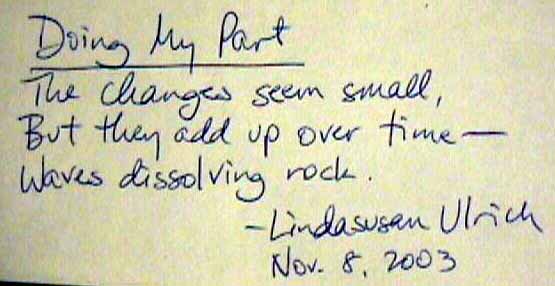 Doing My Part
The changes seem small,
But they add up over time—
Waves dissolving rock.
-Lindasusan Ulrich
Nov. 8, 2003